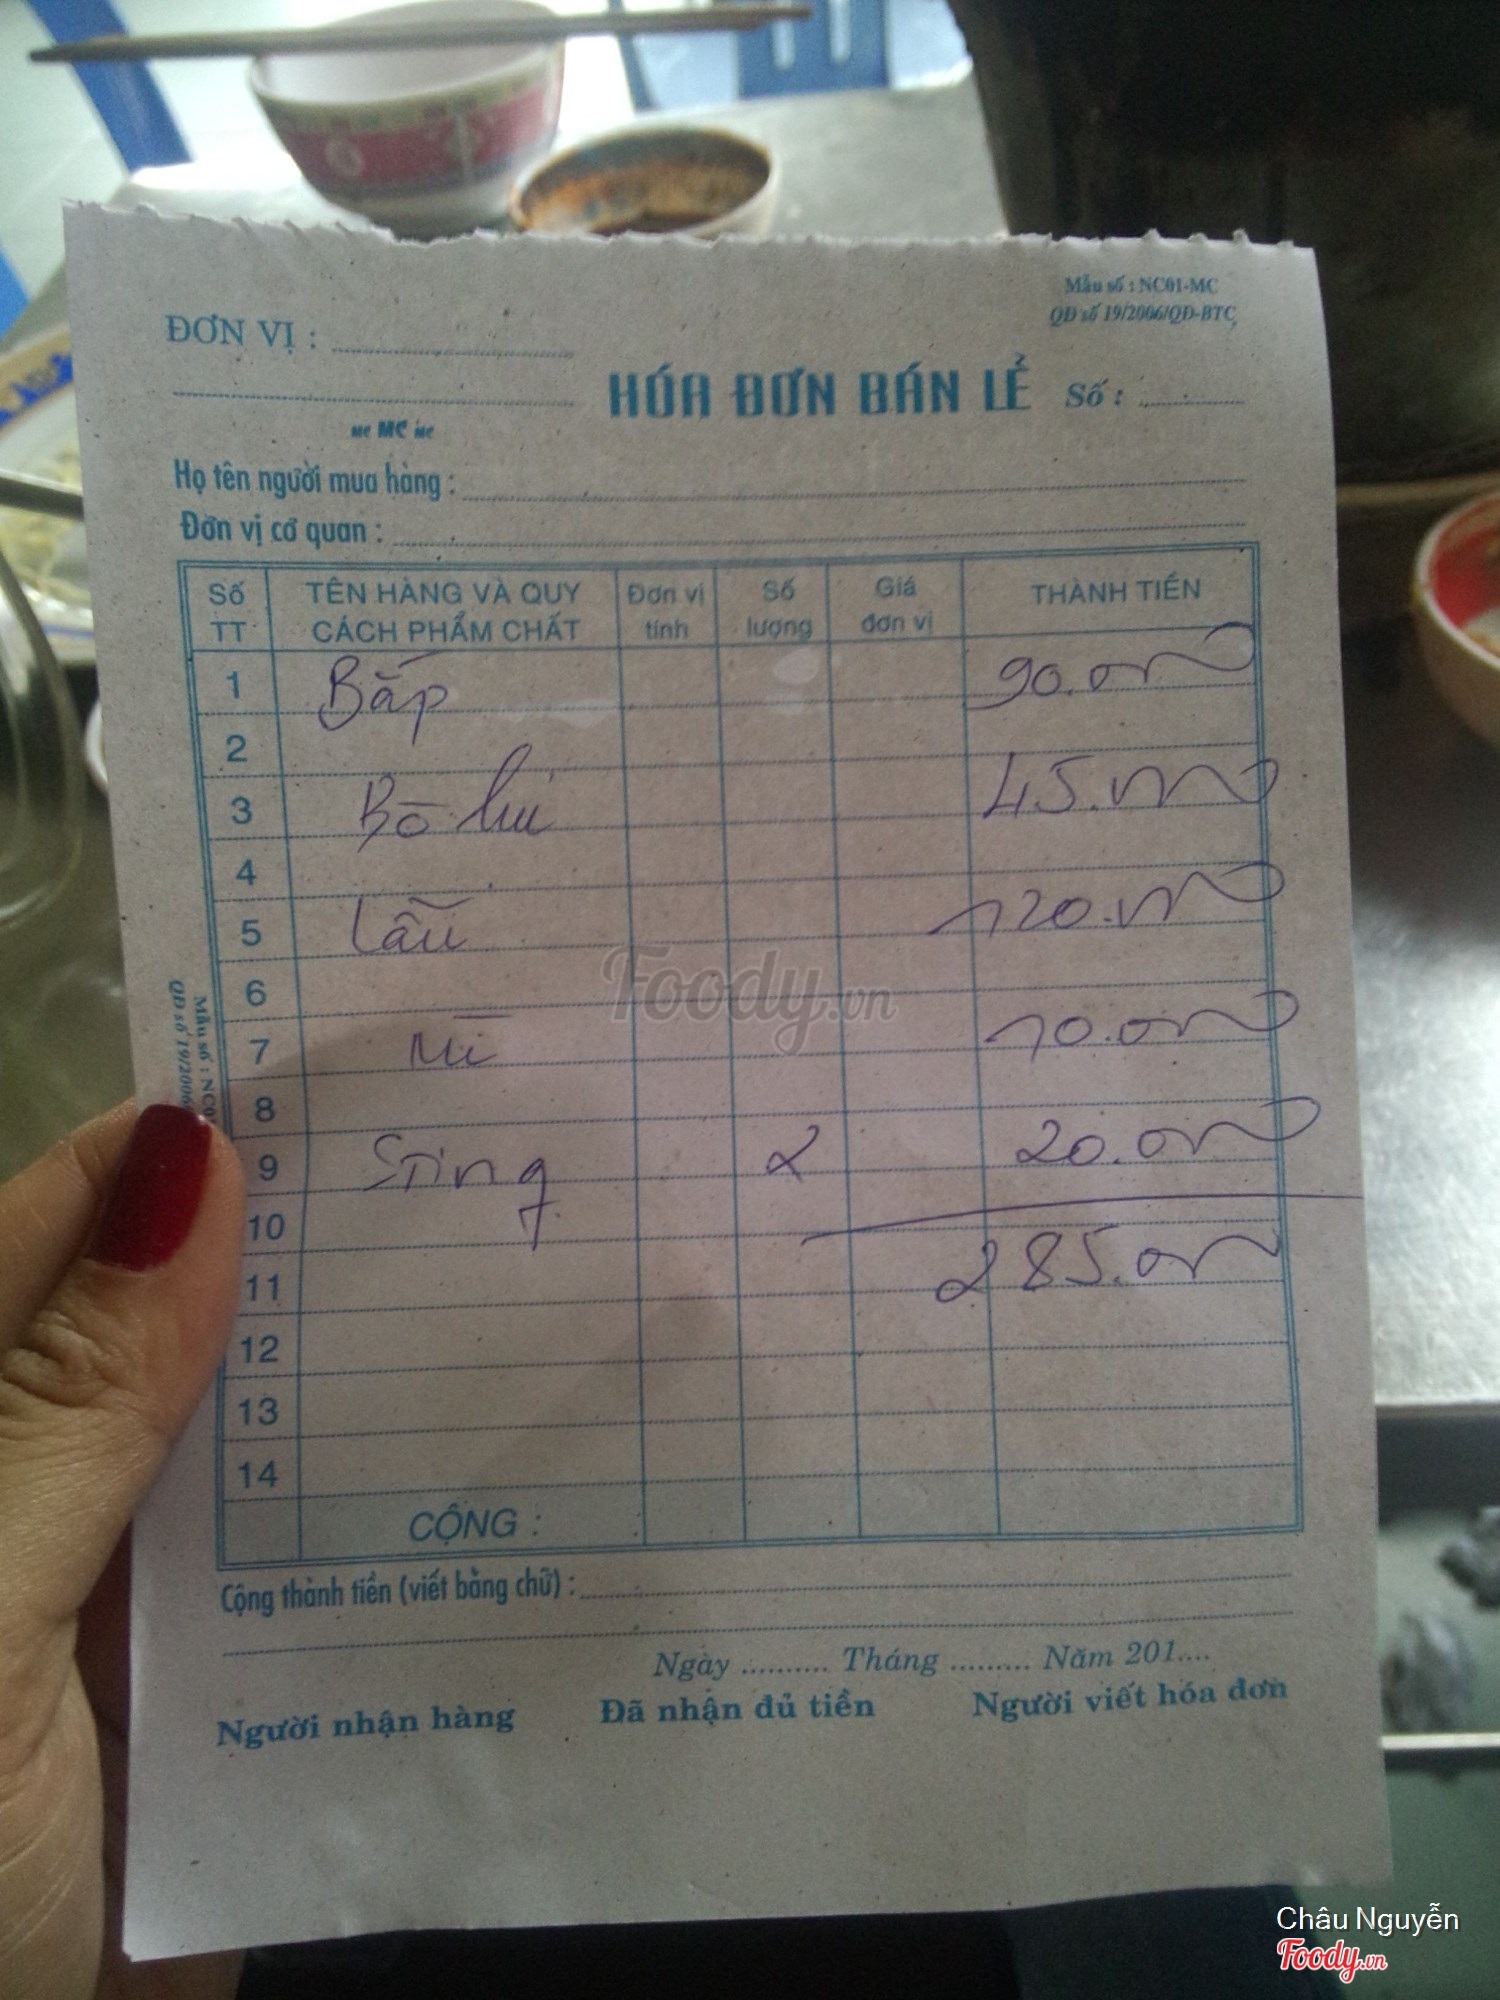 Mẫu số : NC01-MC
QĐ số 19/2006/QĐ-BTC
ĐƠN VỊ :
HÓA ĐƠN BÁN LẺ Số :
MC MC MC
Họ tên người mua hàng :
Đơn vị cơ quan :
Số TT TÊN HÀNG VÀ QUY CÁCH PHẨM CHẤT Đơn vị tính Số lượng Giá đơn vị THÀNH TIỀN
1 Bắp 90.000
2
3 Bò 45.000
4
5 Lẩu 120.000
6
7 Mì 10.000
8
9 Sting 2 20.000
10
11 285.000
12
13
14
CỘNG :
Cộng thành tiền (viết bằng chữ) :
Ngày .......... Tháng ......... Năm 201....
Người nhận hàng Đã nhận đủ tiền Người viết hóa đơn
Mẫu số : NC0
QĐ số 19/2006
Foody.vn
Châu Nguyễn
Foody.vn